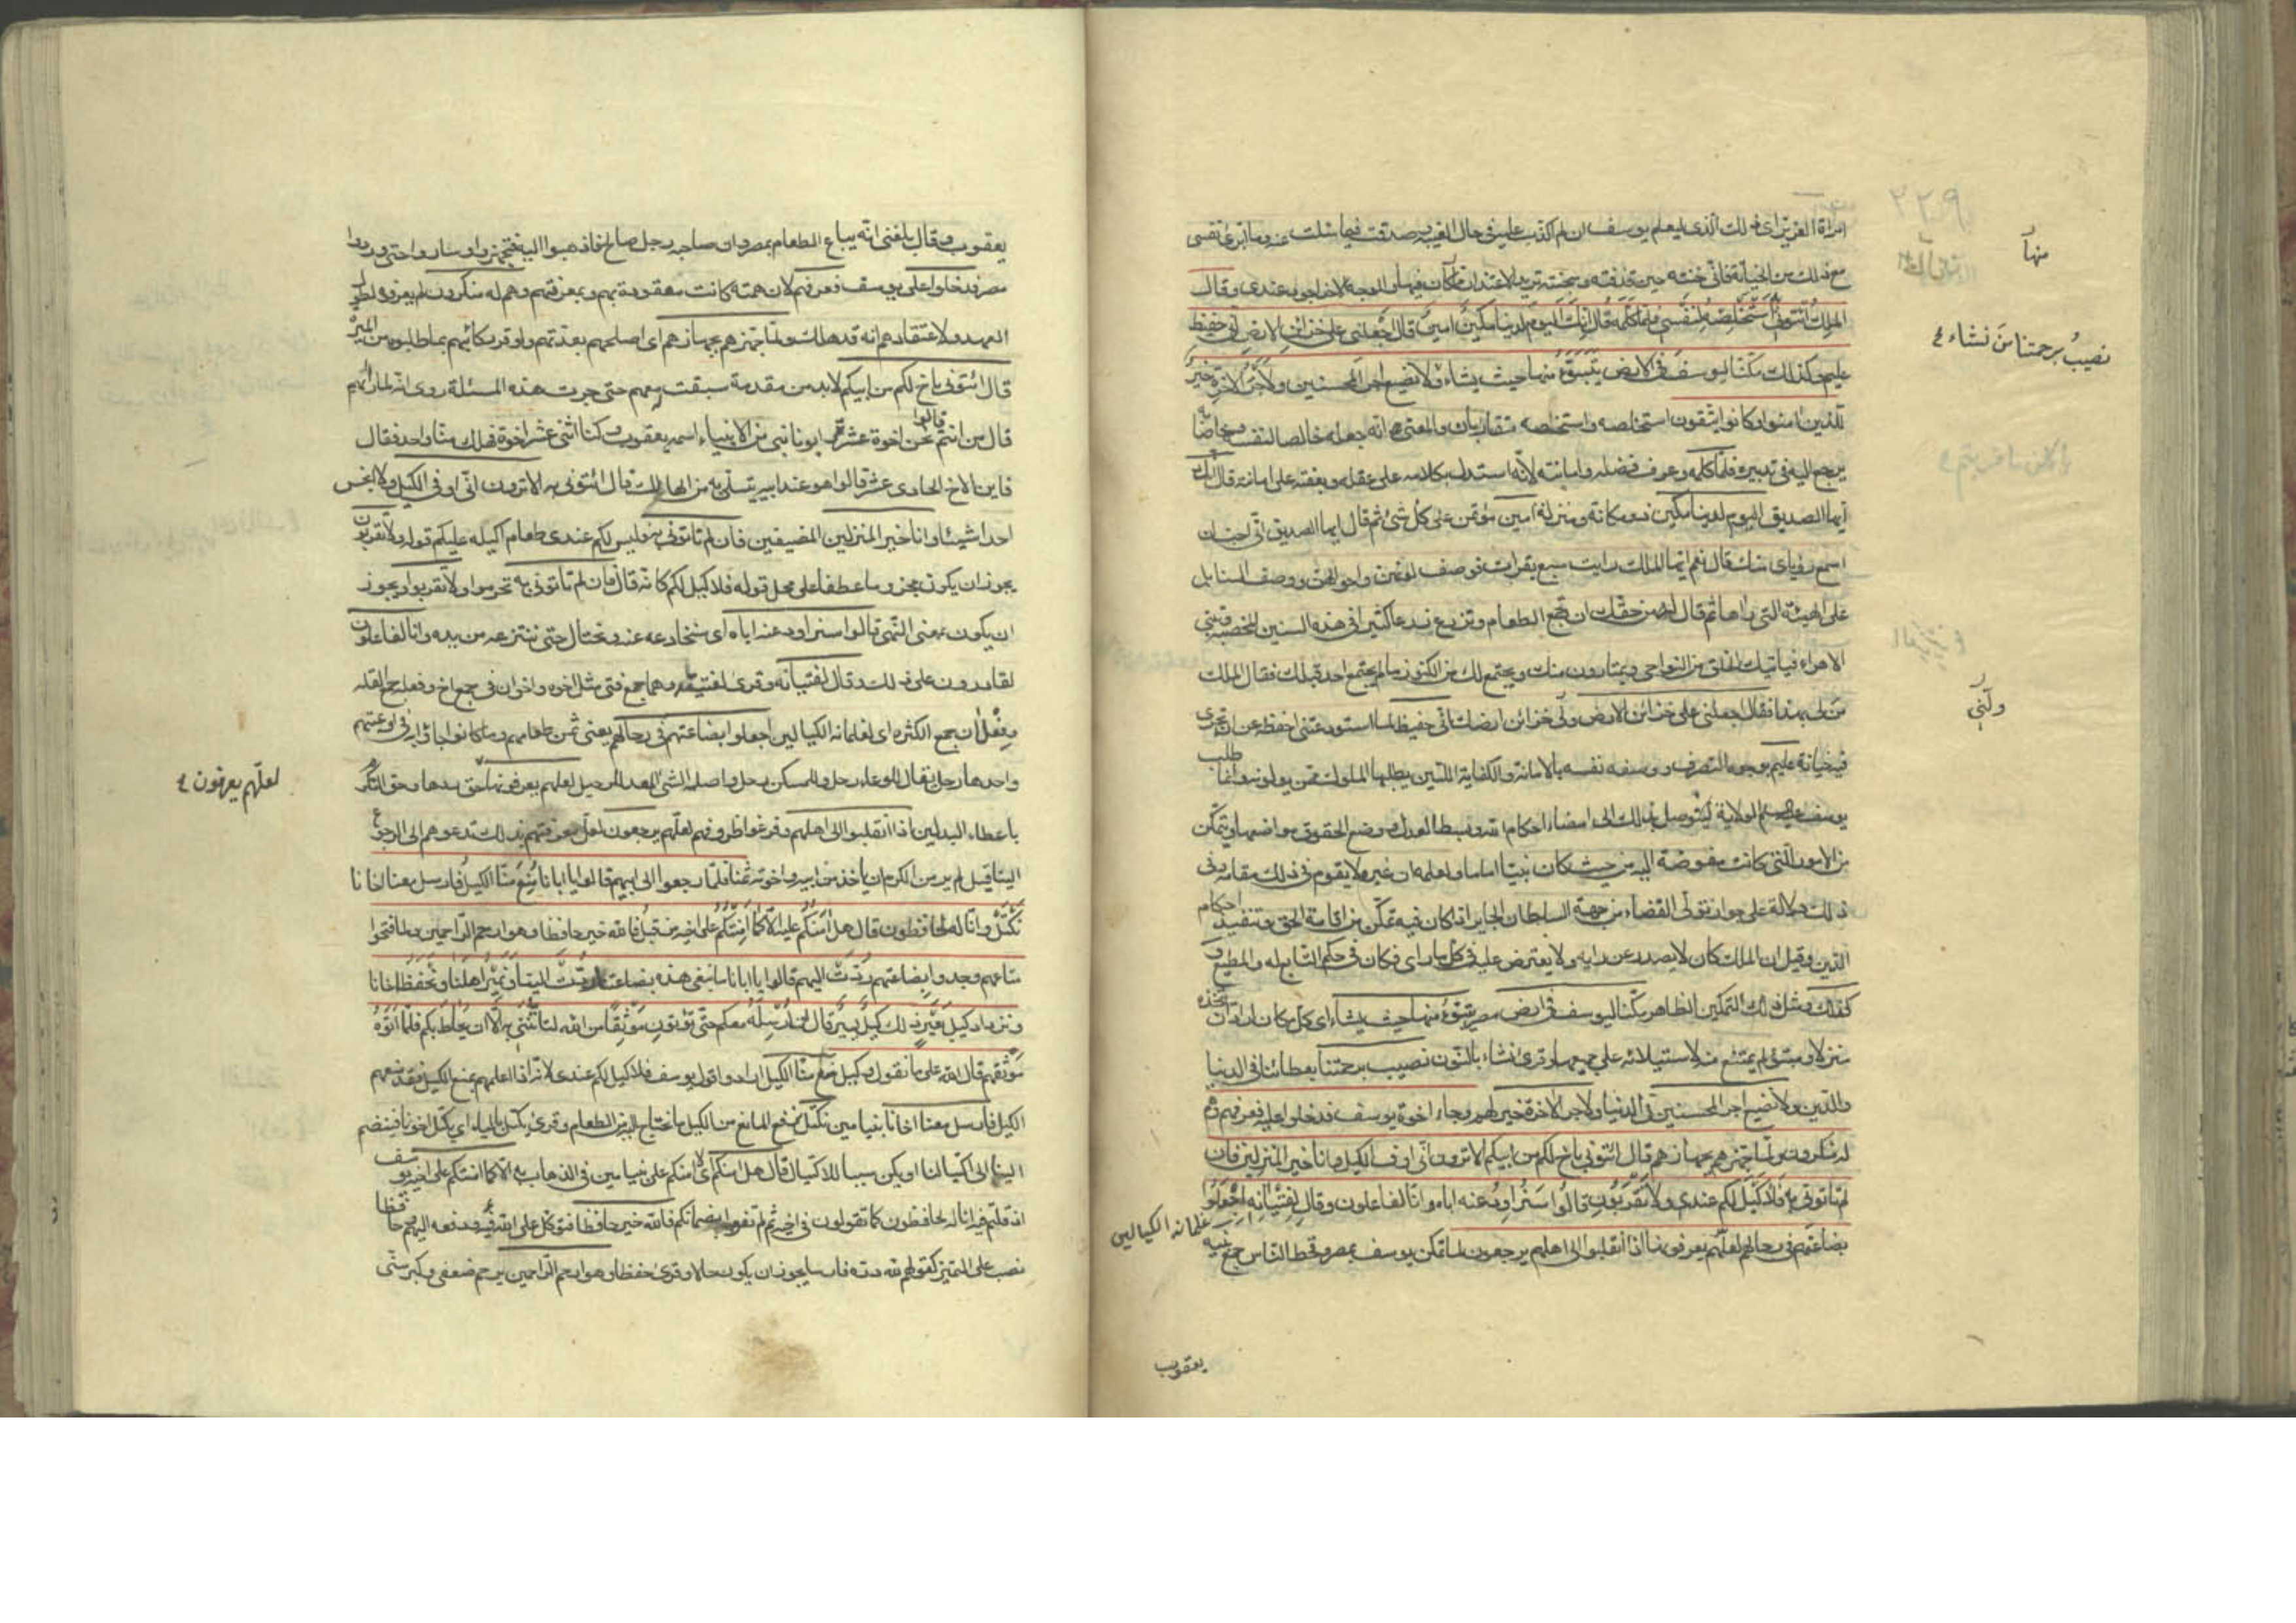 ٢٢٩
امراة العزيز اى ذلك الذى ليعلم يوسف ان لم اكذب عليه فى حال الغيبه وصدقت فيما سئلت عنه وما ابرئ نفسى
مع ذلك من الخيانة فانى خنته حين قذفته وسجنته تريد الاعتذار مما كان فيها والوجه الاخر اجود عندى وقال
الملك ائتونى به استخلصه لنفسى فلما كلمه قال انك اليوم لدينا مكين امين قال اجعلنى على خزائن الارض انى حفيظ
عليم وكذلك مكنا ليوسف فى الارض يتبوء منها حيث يشاء ولا نضيع اجر المحسنين ولاجر الاخرة خير
منها
نصيب برحمتنا من نشاء ع
للذين امنوا وكانوا يتقون استخلصه واستخصه متقاربان والمعنى انه جعله خالصا لنفسه وخاصا به
يرجع اليه فى تدبيره فلما كلمه وعرف فضله وامانته لانه استدل بكلامه على عقله وبعفته على امانته قال انك
ايها الصديق اليوم لدينا مكين ذو مكانة ومنزلة امين مؤتمن على كل شئ ثم قال ايها الصديق انى احب ان
اسمع رؤياى منك قال نعم ايها الملك رايت سبع بقرات فوصف لونهن واحوالهن ووصف السنابل
على الهيئة التى راها ثم قال له من حقك ان تجمع الطعام وتزرع زرعا كثيرا فى هذه السنين المخصبة وتبنى
الاهراء فياتيك الخلق من النواحى ويمتارون منك ويجتمع لك من الكنوز ما لم يجتمع لاحد قبلك فقال الملك
من لى بهذا فقال اجعلنى على خزائن الارض ولنى خزائن ارضك انى حفيظ لما استودعتنى احفظه عن ان تجرى
ولنى
فيه خيانة عليم بوجوه التصرف ووصف نفسه بالامانة والكفاية اللتين يطلبهما الملوك ممن يولونه وانما طلب
يوسف عليه السلم الولاية ليتوصل بذلك الى امضاء احكام الله وبسط العدل ووضع الحقوق مواضعها ويتمكن
من الامور التى كانت مفوضة اليه من حيث كان نبيا اماما ولعلمه ان غيره لا يقوم فى ذلك مقامه وفى
ذلك دلالة على جواز تولى القضاء من جهة السلطان الجاير اذا كان فيه تمكن من اقامة الحق وتنفيذ احكام
الدين وقيل ان الملك كان لا يصدر عن رايه ولا يعترض عليه فى كل ما راى فكان فى حكم التابع له والمطيع و
كذلك ومثل ذلك التمكين الظاهر مكنا ليوسف فى ارض مصر يتبوء منها حيث يشاء اى كل مكان اراد ان يتخذه
منزلا ومتبوئ لم يمتنع منه لاستيلائه على جميعها وقرئ نشاء بالنون نصيب برحمتنا بعطائنا فى الدنيا
والدين ولا نضيع اجر المحسنين فى الدنيا ولاجر الاخرة خير لهم وجاء اخوة يوسف فدخلوا عليه فعرفهم وهم
له منكرون ولما جهزهم بجهازهم قال ائتونى باخ لكم من ابيكم الا ترون انى اوف الكيل وانا خير المنزلين فان
لم تاتونى به فلا كيل لكم عندى ولا تقربون قالوا سنراود عنه اباه وانا لفاعلون وقال لفتيانه اجعلوا
غلمانه الكيالين
بضاعتهم فى رحالهم لعلهم يعرفونها اذا انقلبوا الى اهلهم لعلهم يرجعون لما تمكن يوسف بمصر وقحط الناس جمع بنيه
يعقوب
يعقوب وقال بلغنى انه يباع الطعام بمصر وان صاحبه رجل صالح فاذهبوا اليه فتجهزوا وساروا حتى وردوا
مصر فدخلوا على يوسف فعرفهم لان همته كانت معقودة بهم وبمعرفتهم وهم له منكرون لم يعرفوه لطول
العهد ولاعتقادهم انه قد هلك ولما جهزهم بجهازهم اى اصلحهم بعدتهم واوقر ركائبهم بما طلبوه من الميرة
قال ائتونى باخ لكم من ابيكم لابد من مقدمة سبقت معهم حتى جرت هذه المسئلة روى انه لما راهم
قال من انتم قالوا نحن اخوة عشرة ابونا نبى من الانبياء اسمه يعقوب وكنا اثنى عشر اخوة فهلك منا واحد فقال
فاين الاخ الحادى عشر قالوا هو عند ابيه يتسلى به من الهالك قال ائتونى به الا ترون انى اوفى الكيل ولا ابخس
احدا شيئا وانا خير المنزلين المضيفين فان لم تاتونى به فليس لكم عندى طعام اكيله عليكم قوله ولا تقربون
يجوز ان يكون مجزوما عطفا على محل قوله فلا كيل لكم كانه قال فان لم تاتونى به تحرموا ولا تقربوا ويجوز
ان يكون بمعنى النهى قالوا سنراود عنه اباه اى سنخادعه عنه ونحتال حتى ننتزعه من يده وانا لفاعلون
لقادرون على ذلك وقال لفتيانه وقرئ لفتيته وهما جمع فتى مثل اخوة واخوان فى جمع اخ وفعلة جمع القله
وفعلان جمع الكثره اى لغلمانه الكيالين اجعلوا بضاعتهم فى رحالهم يعنى ثمن طعامهم وما كانوا جاؤا به فى اوعيتهم
واحدها رحل يقال للوعاء رحل وللمسكن رحل واصله الشئ المعد للرحيل لعلهم يعرفونها حق ردها وحق التكرم
لعلهم يعرفون ع
باعطاء البدلين اذا انقلبوا الى اهلهم وفرغوا ظروفهم لعلهم يرجعون لعل معرفتهم بذلك تدعوهم الى الرجوع
الينا وقيل لم ير من الكرم ان ياخذ من ابيه واخوته ثمنا فلما رجعوا الى ابيهم قالوا يا ابانا منع منا الكيل فارسل معنا اخانا
نكتل وانا له لحافظون قال هل امنكم عليه الا كما امنتكم على اخيه من قبل فالله خير حافظا وهو ارحم الراحمين ولما فتحوا
متاعهم وجدوا بضاعتهم ردت اليهم قالوا يا ابانا ما نبغى هذه بضاعتنا ردت الينا ونمير اهلنا ونحفظ اخانا
ونزداد كيل بعير ذلك كيل يسير قال لن ارسله معكم حتى تؤتون موثقا من الله لتاتننى به الا ان يحاط بكم فلما اتوه
موثقهم قال الله على ما نقول وكيل منع منا الكيل ارادوا قول يوسف فلا كيل لكم عندى لانه اذا اعلمهم بمنع الكيل فقد منعهم
الكيل فارسل معنا اخانا بنيامين نكتل نرفع المانع من الكيل ما نحتاج اليه من الطعام وقرئ يكتل بالياء اى يكتل اخونا فينضم
اكتياله الى اكتيالنا او يكن سببا للاكتيال قال هل امنكم اى لا امنكم على بنيامين فى الذهاب به الا كما امنتكم على اخيه يوسف
اذ قلتم فيه انا له لحافظون كما تقولون فى اخيه ثم لم تفوا بضمانكم فالله خير حافظا فتوكل على الله فيه ودفعه اليهم حافظا
نصب على التميز كقولهم لله دره فارسا ويجوز ان يكون حالا وقرئ حفظا وهو ارحم الراحمين يرحم ضعفى وكبر سنى